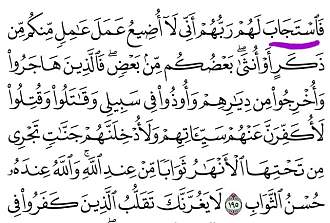 فَٱسْتَجَابَ لَهُمْ رَبُّهُمْ أَنِّى لَآ أُضِيعُ عَمَلَ عَٰمِلٍ مِّنكُم مِّن
ذَكَرٍ أَوْ أُنثَىٰ ۖ بَعْضُكُم مِّنۢ بَعْضٍ ۖ فَٱلَّذِينَ هَاجَرُوا۟
وَأُخْرِجُوا۟ مِن دِيَٰرِهِمْ وَأُوذُوا۟ فِى سَبِيلِى وَقَٰتَلُوا۟ وَقُتِلُوا۟
لَأُكَفِّرَنَّ عَنْهُمْ سَيِّـَٔاتِهِمْ وَلَأُدْخِلَنَّهُمْ جَنَّٰتٍ تَجْرِى
مِن تَحْتِهَا ٱلْأَنْهَٰرُ ثَوَابًا مِّنْ عِندِ ٱللَّهِ ۗ وَٱللَّهُ عِندَهُۥ
حُسْنُ ٱلثَّوَابِ ١٩٥ لَا يَغُرَّنَّكَ تَقَلُّبُ ٱلَّذِينَ كَفَرُوا۟ فِى